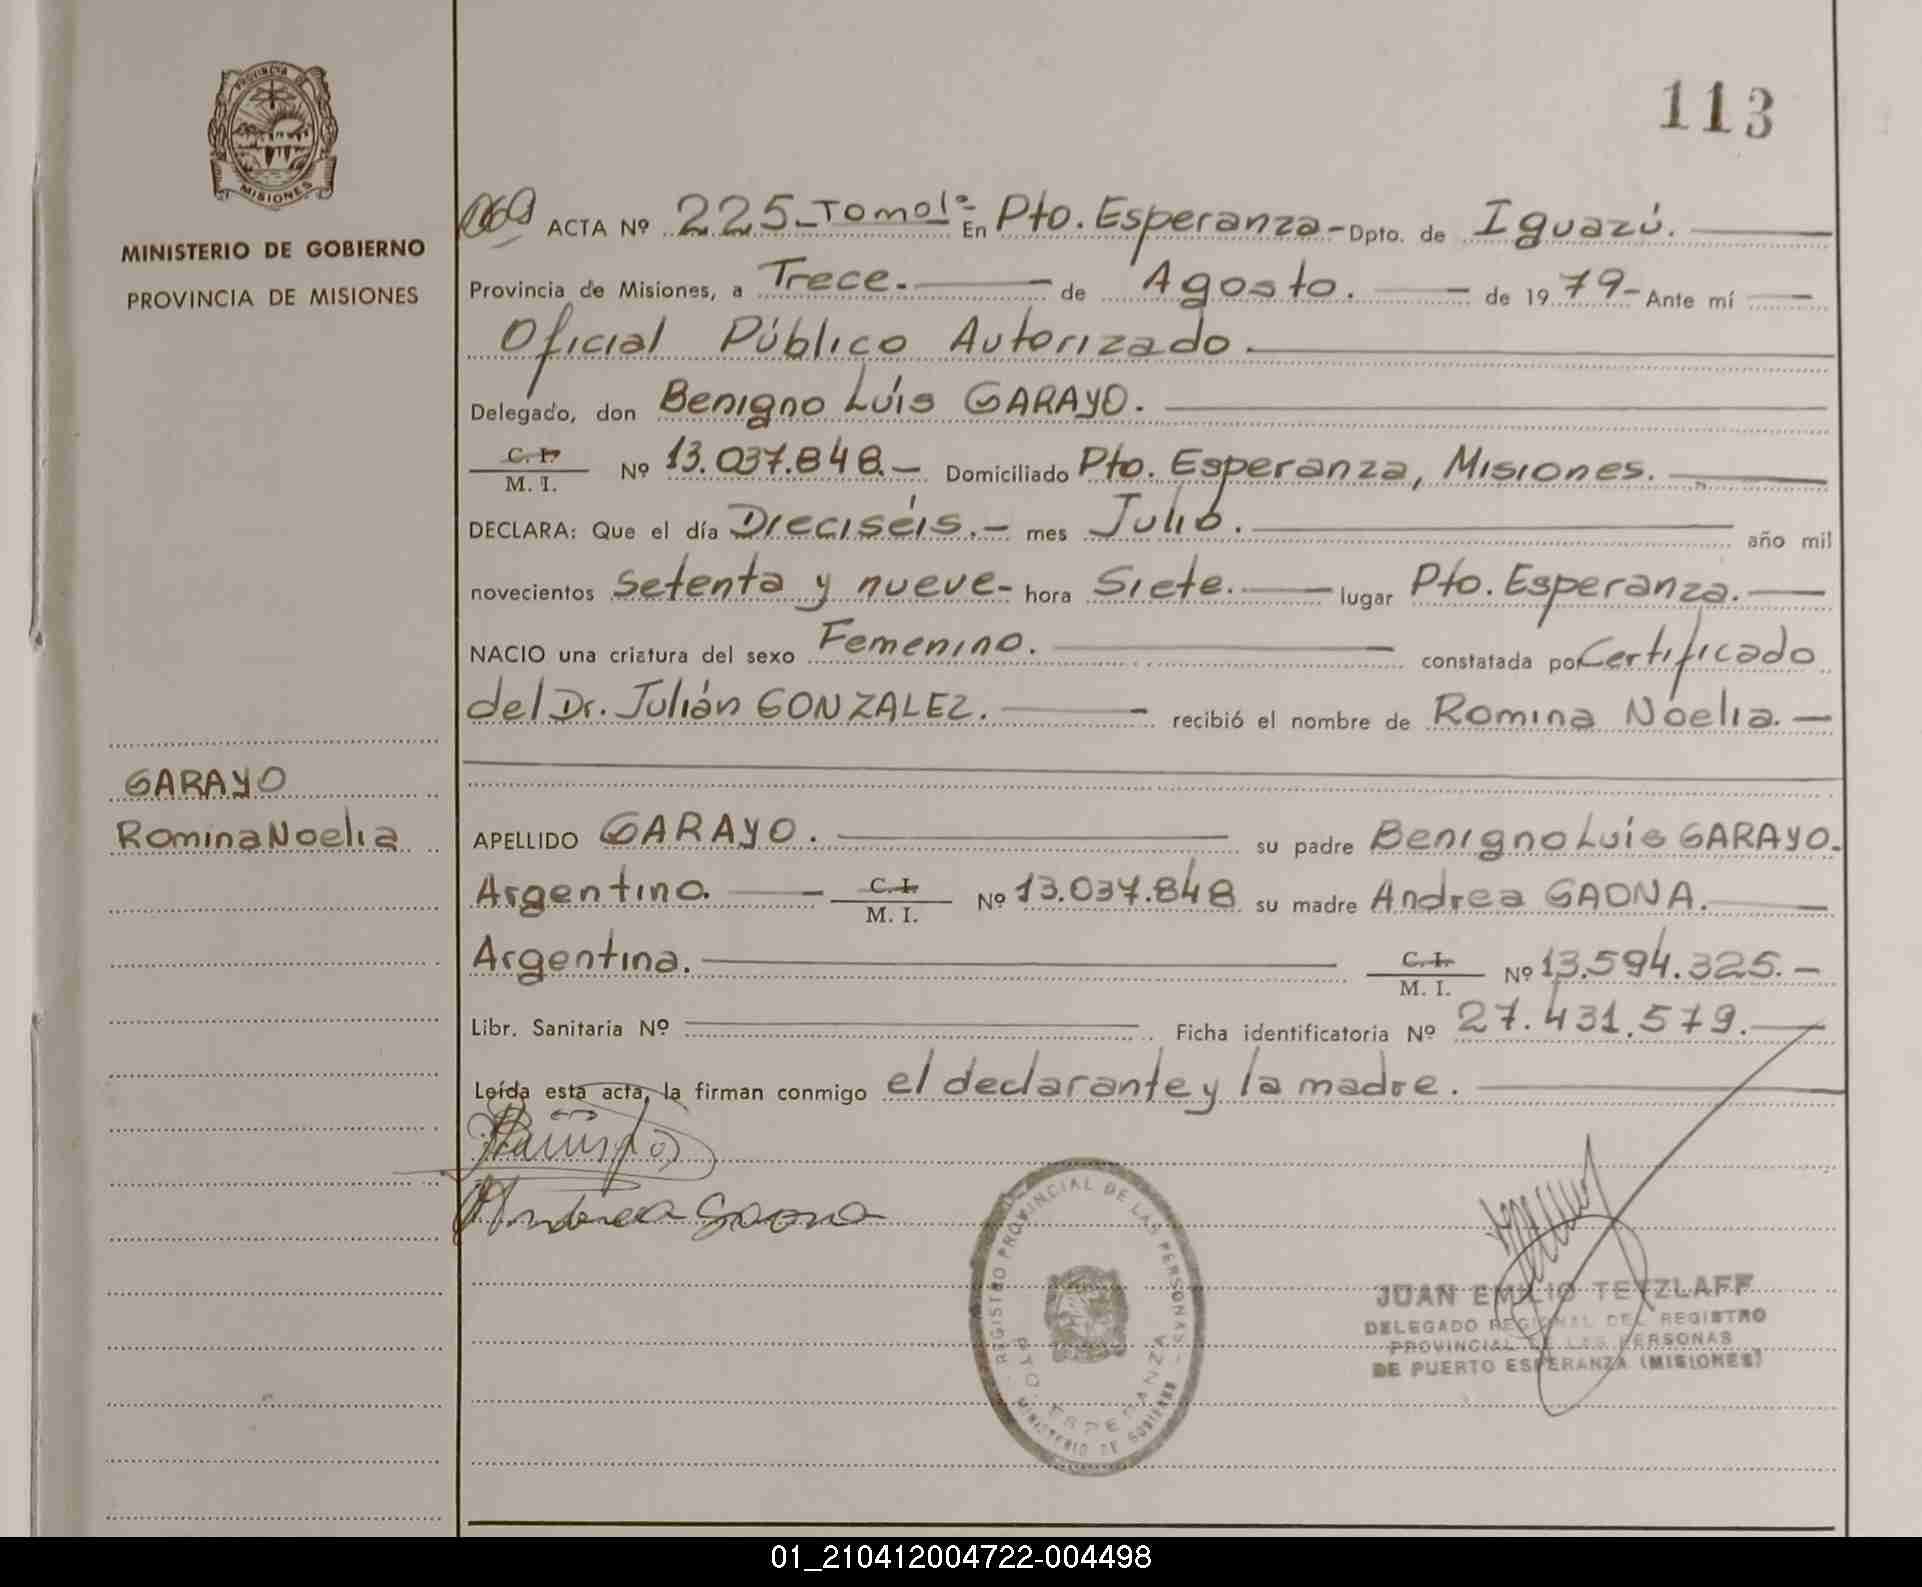 PROVINCIA DE
MISIONES
MINISTERIO DE GOBIERNO
PROVINCIA DE MISIONES
GARAYO
Romina Noelia
113
ACTA Nº 225-Tomo1º- En Pto. Esperanza- Dpto. de Iguazú.
Provincia de Misiones, a Trece. de Agosto. de 19 79- Ante mí
Oficial Público Autorizado.
Delegado, don Benigno Luís GARAYO.
C. I.
M. I. Nº 13.037.848.- Domiciliado Pto. Esperanza, Misiones.
DECLARA: Que el día Dieciséis.- mes Julio. año mil
novecientos setenta y nueve- hora Siete. lugar Pto. Esperanza.
NACIO una criatura del sexo Femenino. constatada por Certificado
del Dr. Julián GONZALEZ. recibió el nombre de Romina Noelia.-
APELLIDO GARAYO. su padre Benigno Luis GARAYO.
Argentino. C. I.
M. I. Nº 13.037.848 su madre Andrea GAONA.
Argentina. C. I.
M. I. Nº 13.594.325.-
Libr. Sanitaria Nº Ficha identificatoria Nº 27.431.579.
Leída esta acta, la firman conmigo el declarante y la madre.
Andrea Gaona
REGISTRO PROVINCIAL DE LAS PERSONAS
PTO. ESPERANZA
MINISTERIO DE GOBIERNO
JUAN EMILIO TETZLAFF
DELEGADO REGIONAL DEL REGISTRO
PROVINCIAL DE LAS PERSONAS
DE PUERTO ESPERANZA (MISIONES)
01_210412004722-004498